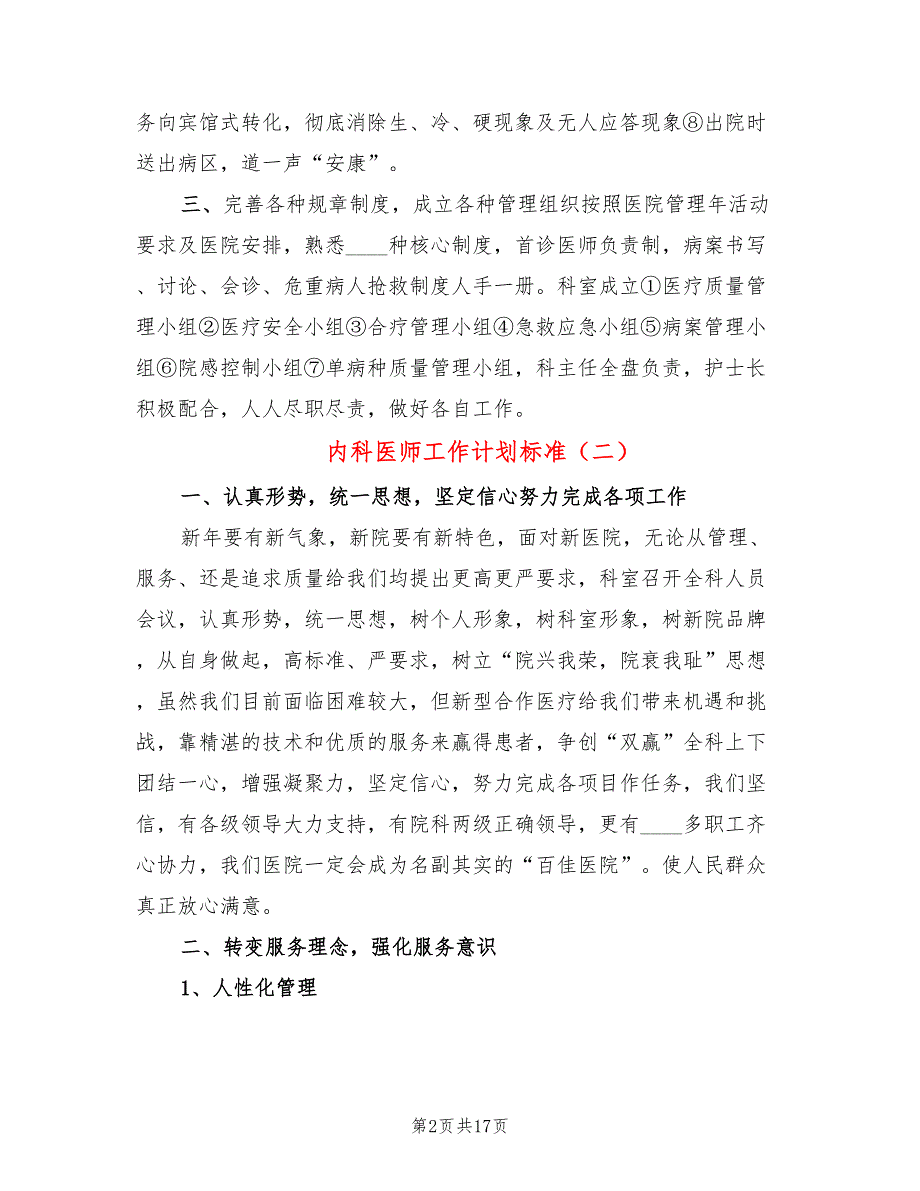 务向宾馆式转化，彻底消除生、冷、硬现象及无人应答现象⑧出院时
送出病区，道一声“安康”。
三、完善各种规章制度，成立各种管理组织按照医院管理年活动
要求及医院安排，熟悉____种核心制度，首诊医师负责制，病案书写
、讨论、会诊、危重病人抢救制度人手一册。科室成立①医疗质量管
理小组②医疗安全小组③合疗管理小组④急救应急小组⑤病案管理小
组⑥院感控制小组⑦单病种质量管理小组，科主任全盘负责，护士长
积极配合，人人尽职尽责，做好各自工作。
内科医师工作计划标准（二）
一、认真形势，统一思想，坚定信心努力完成各项工作
新年要有新气象，新院要有新特色，面对新医院，无论从管理、
服务、还是追求质量给我们均提出更高更严要求，科室召开全科人员
会议，认真形势，统一思想，树个人形象，树科室形象，树新院品牌
，从自身做起，高标准、严要求，树立“院兴我荣，院衰我耻”思想
，虽然我们目前面临困难较大，但新型合作医疗给我们带来机遇和挑
战，靠精湛的技术和优质的服务来赢得患者，争创“双赢”全科上下
团结一心，增强凝聚力，坚定信心，努力完成各项目作任务，我们坚
信，有各级领导大力支持，有院科两级正确领导，更有____多职工齐
心协力，我们医院一定会成为名副其实的“百佳医院”。使人民群众
真正放心满意。
二、转变服务理念，强化服务意识
1、人性化管理
第2页共17页